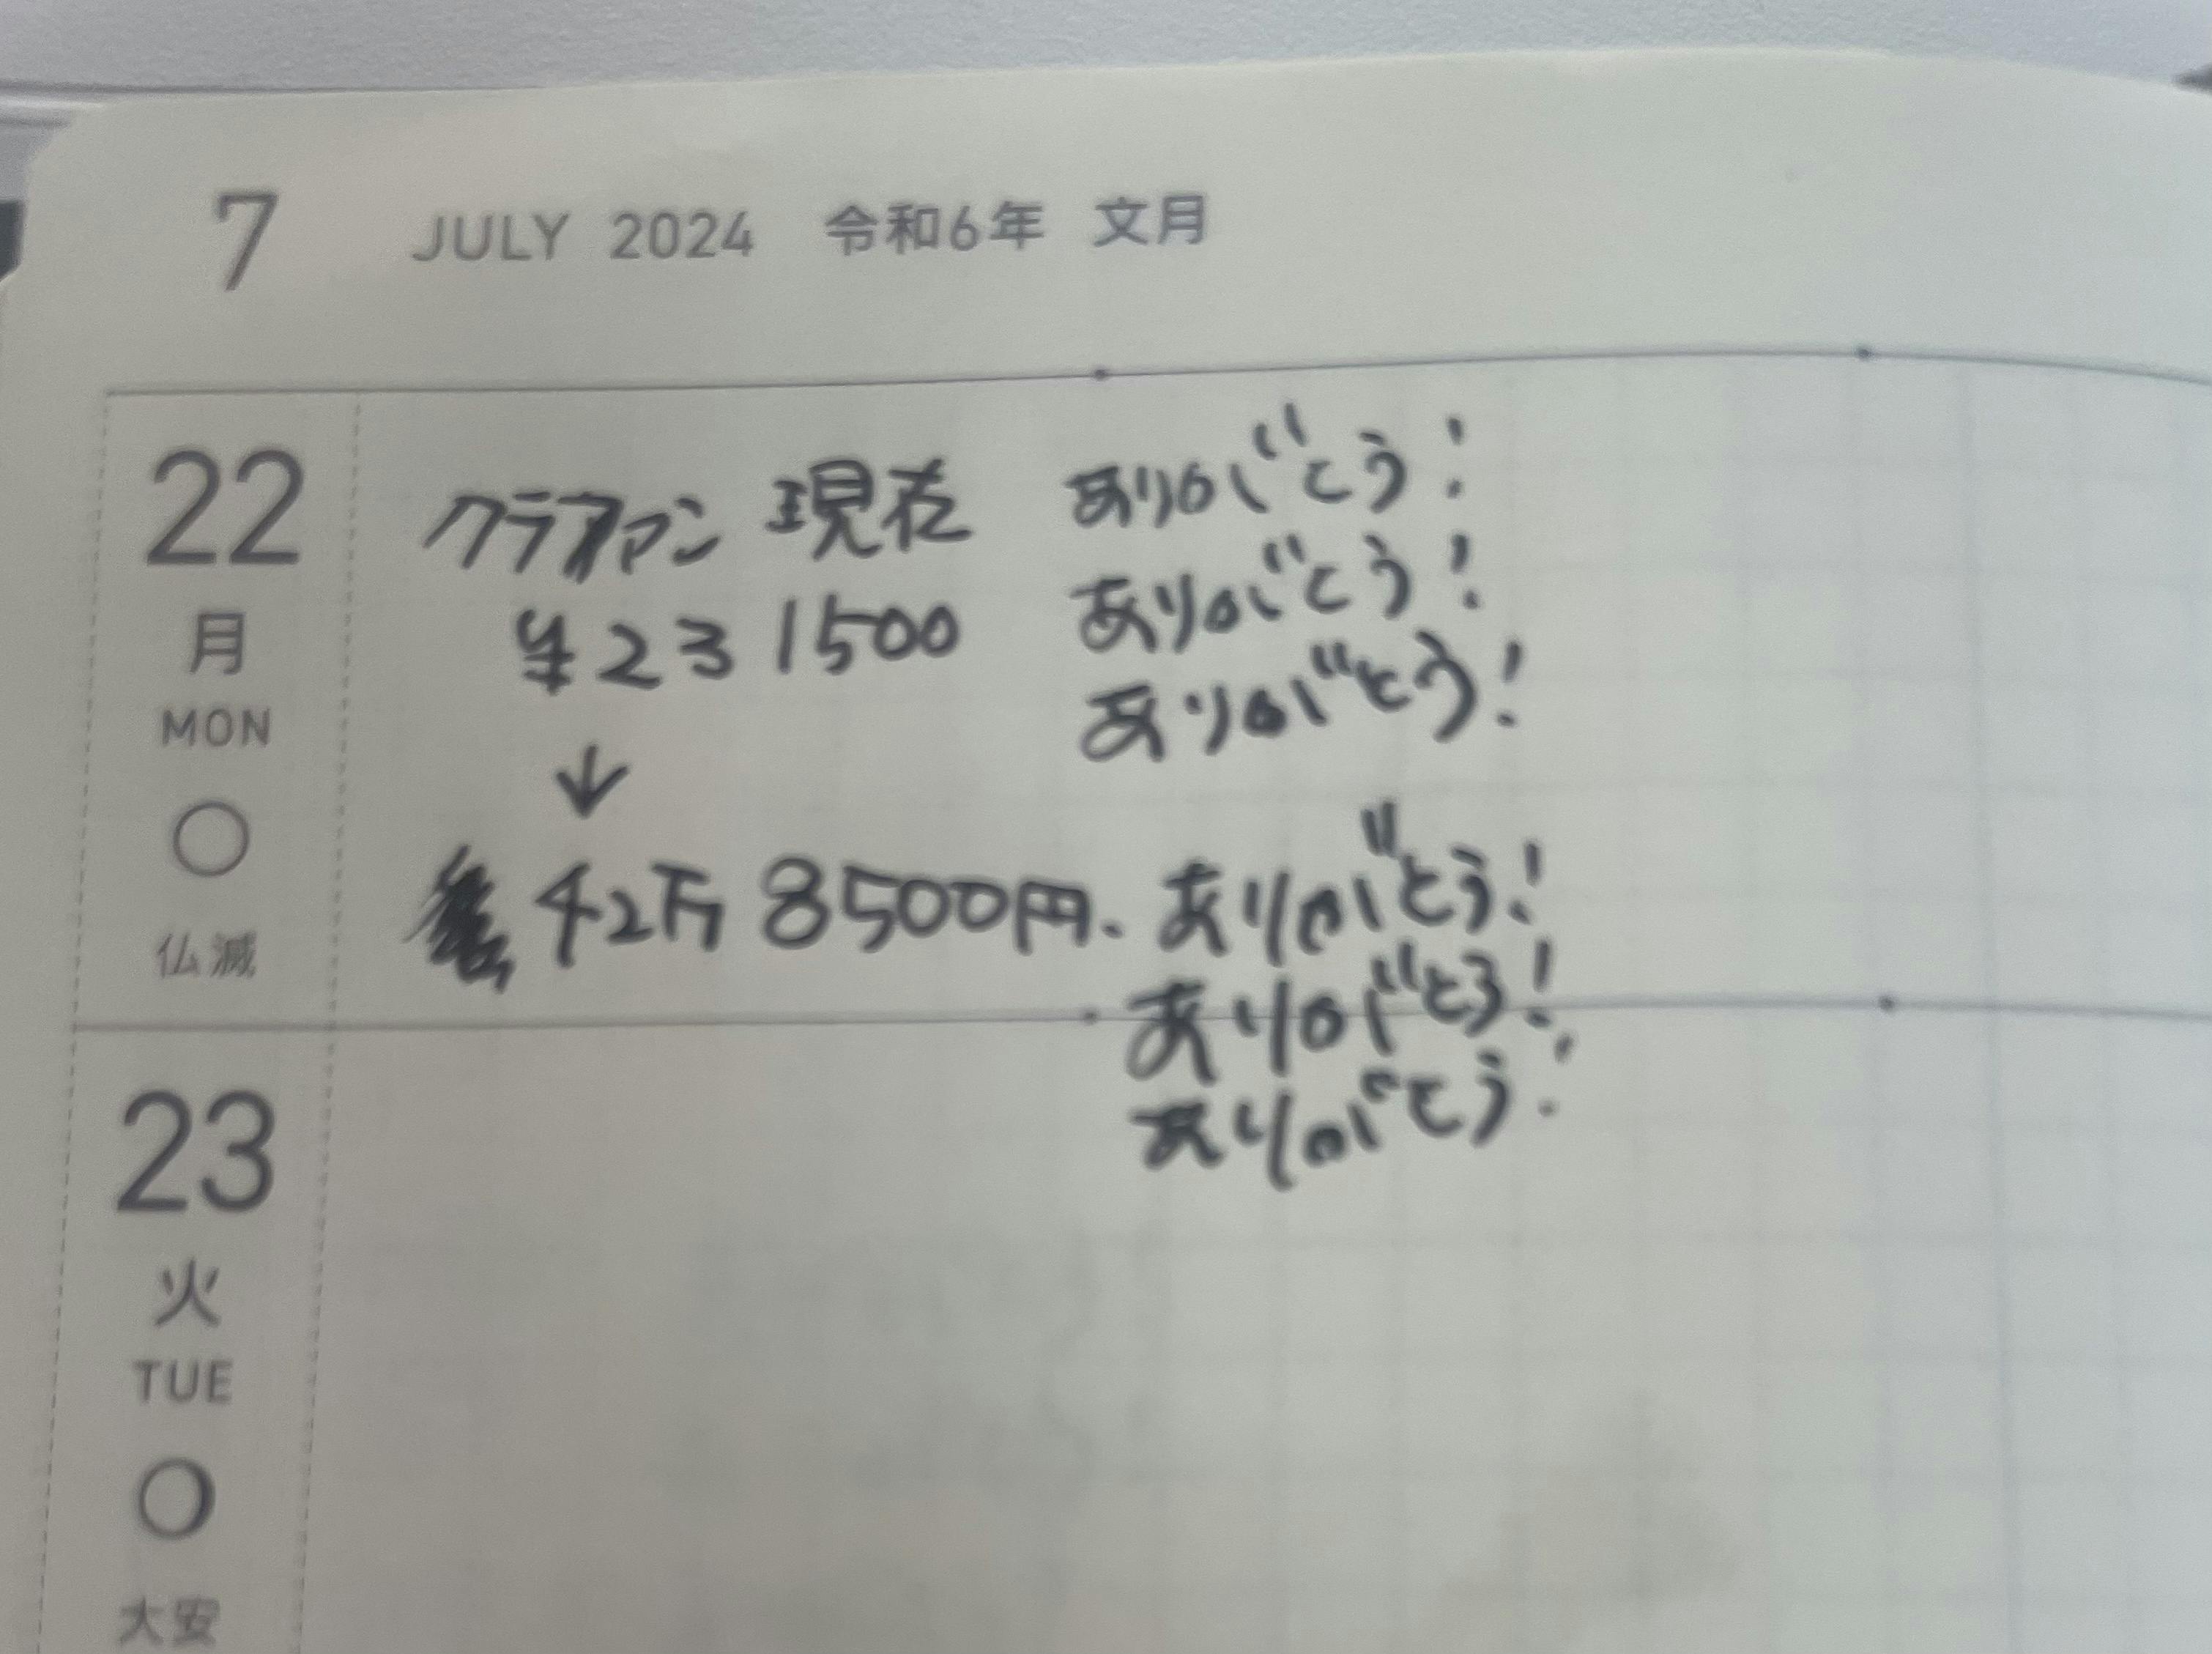 7 JULY 2024 令和6年 文月
22
月
MON
仏滅
クラファン 現在
¥231500
↓
42万8500円.
ありがとう!
ありがとう!
ありがとう!
ありがとう!
ありがとう!
ありがとう!
23
火
TUE
大安